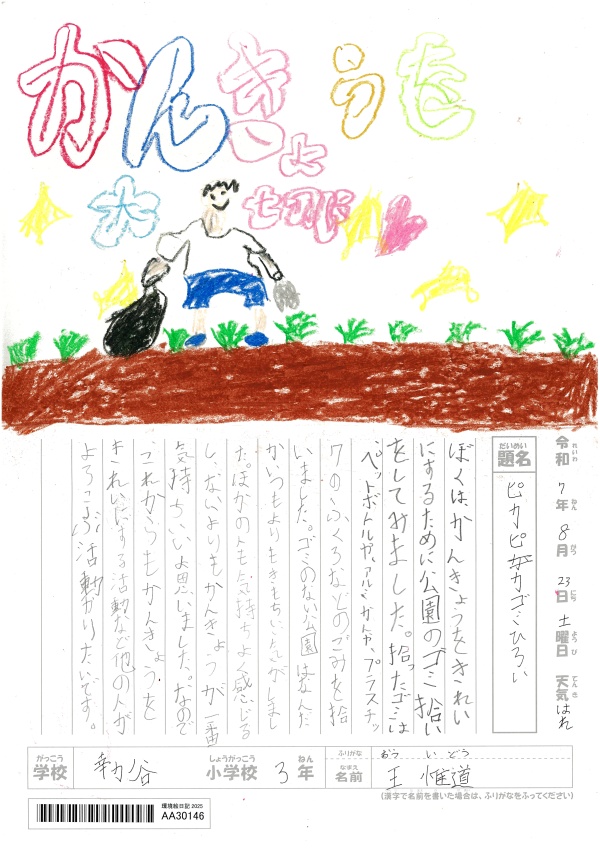 かんきょうを
大切に
令和7年8月23日土曜日 天気はれ
題名 ピカピカゴミひろい
ぼくは、かんきょうをきれい
にするために公園のゴミ拾い
をしてみました。拾ったゴミは
ペットボトルや、アルミかんや、プラスチッ
クのふくろなどのごみを拾
いました。ゴミのない公園はなんだ
かいつもよりもきもちいい気がしまし
た。ほかの人も気持ちよく感じる
し、ないよりもかんきょうが一番
気持ちいいと思いました。なので
これからもかんきょうを
きれいにする活動など他の人が
よろこぶ活動がやりたいです。
がっこう 学校 しょうがっこう 小学校 3年 ねん
ふりがな おう い どう
なまえ 名前 王 惟道
(漢字で名前を書いた場合は、ふりがなをふってください)
環境絵日記 2025
AA30146